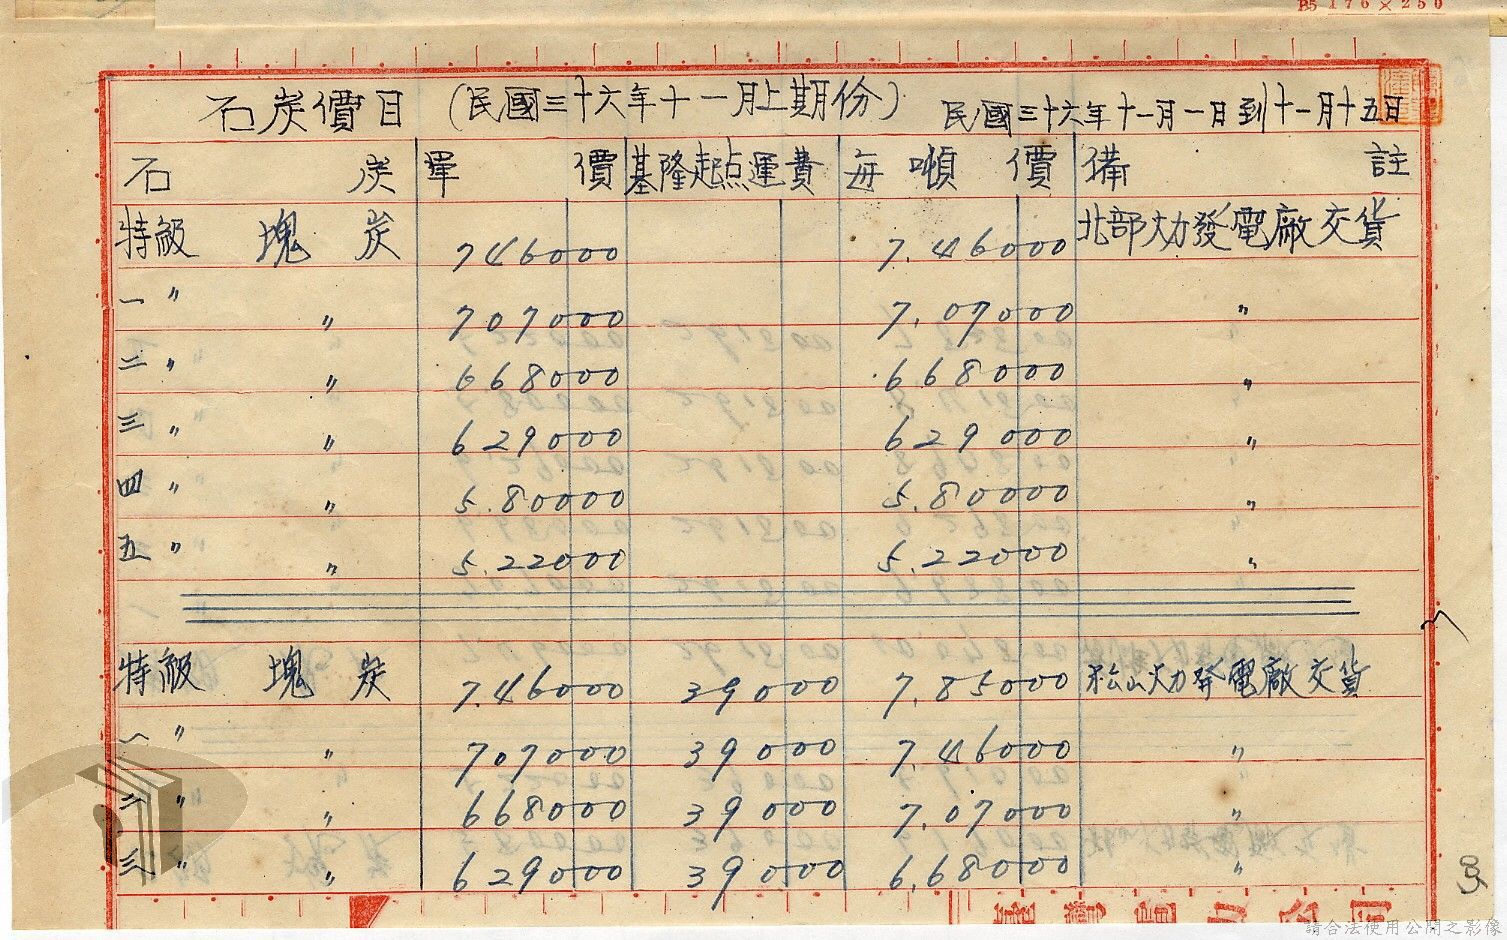 B5 176×250
石炭價目 (民國三十六年十一月上期份) 民國三十六年十一月一日到十一月十五日
石炭 單價 基隆起点運費 每噸價 備註
特級 塊炭 746000 7.46000 北部火力發電廠交貨
一〃 〃 707000 7.07000 〃
二〃 〃 668000 668000 〃
三〃 〃 629000 629000 〃
四〃 〃 5.80000 5.80000 〃
五〃 〃 5.22000 5.22000 〃
特級 塊炭 7.46000 39000 7.85000 松山火力發電廠交貨
一〃 〃 707000 39000 7.46000 〃
二〃 〃 668000 39000 7.07000 〃
三〃 〃 629000 39000 6.68000 〃
請合法使用公開之影像